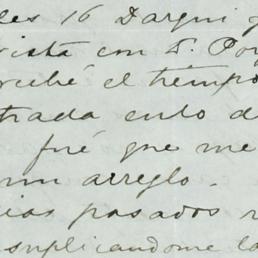 les 16 Darqui
vista con S. Por
recibé el tiempo
trada ento d
fué que me
un arreglo.
ias pasados r
suplicandome la